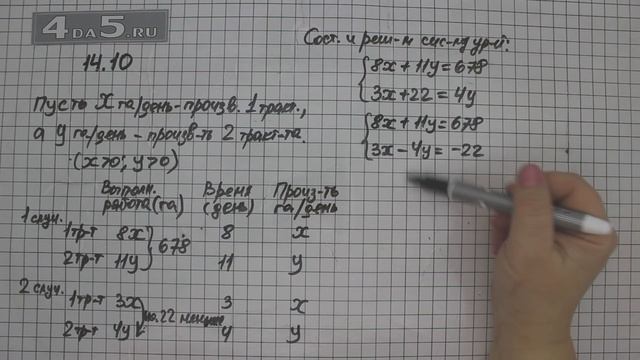 4DA5.RU
14.10
Пусть x га/день - произв. 1 тракт.,
а y га/день - произв-ть 2 тракт-та.
(x>0; y>0)
Выполн. работа (га) Время (день) Произ-ть га/день
1 случ.
1тр-т 8x 8 x
678
2тр-т 11y 11 y
2 случ.
1тр-т 3x 3 x
на 22 меньше
2тр-т 4y 4 y
Сост. и реш-м сис-му ур-й:
8x+11y=678
3x+22=4y
8x+11y=678
3x-4y=-22